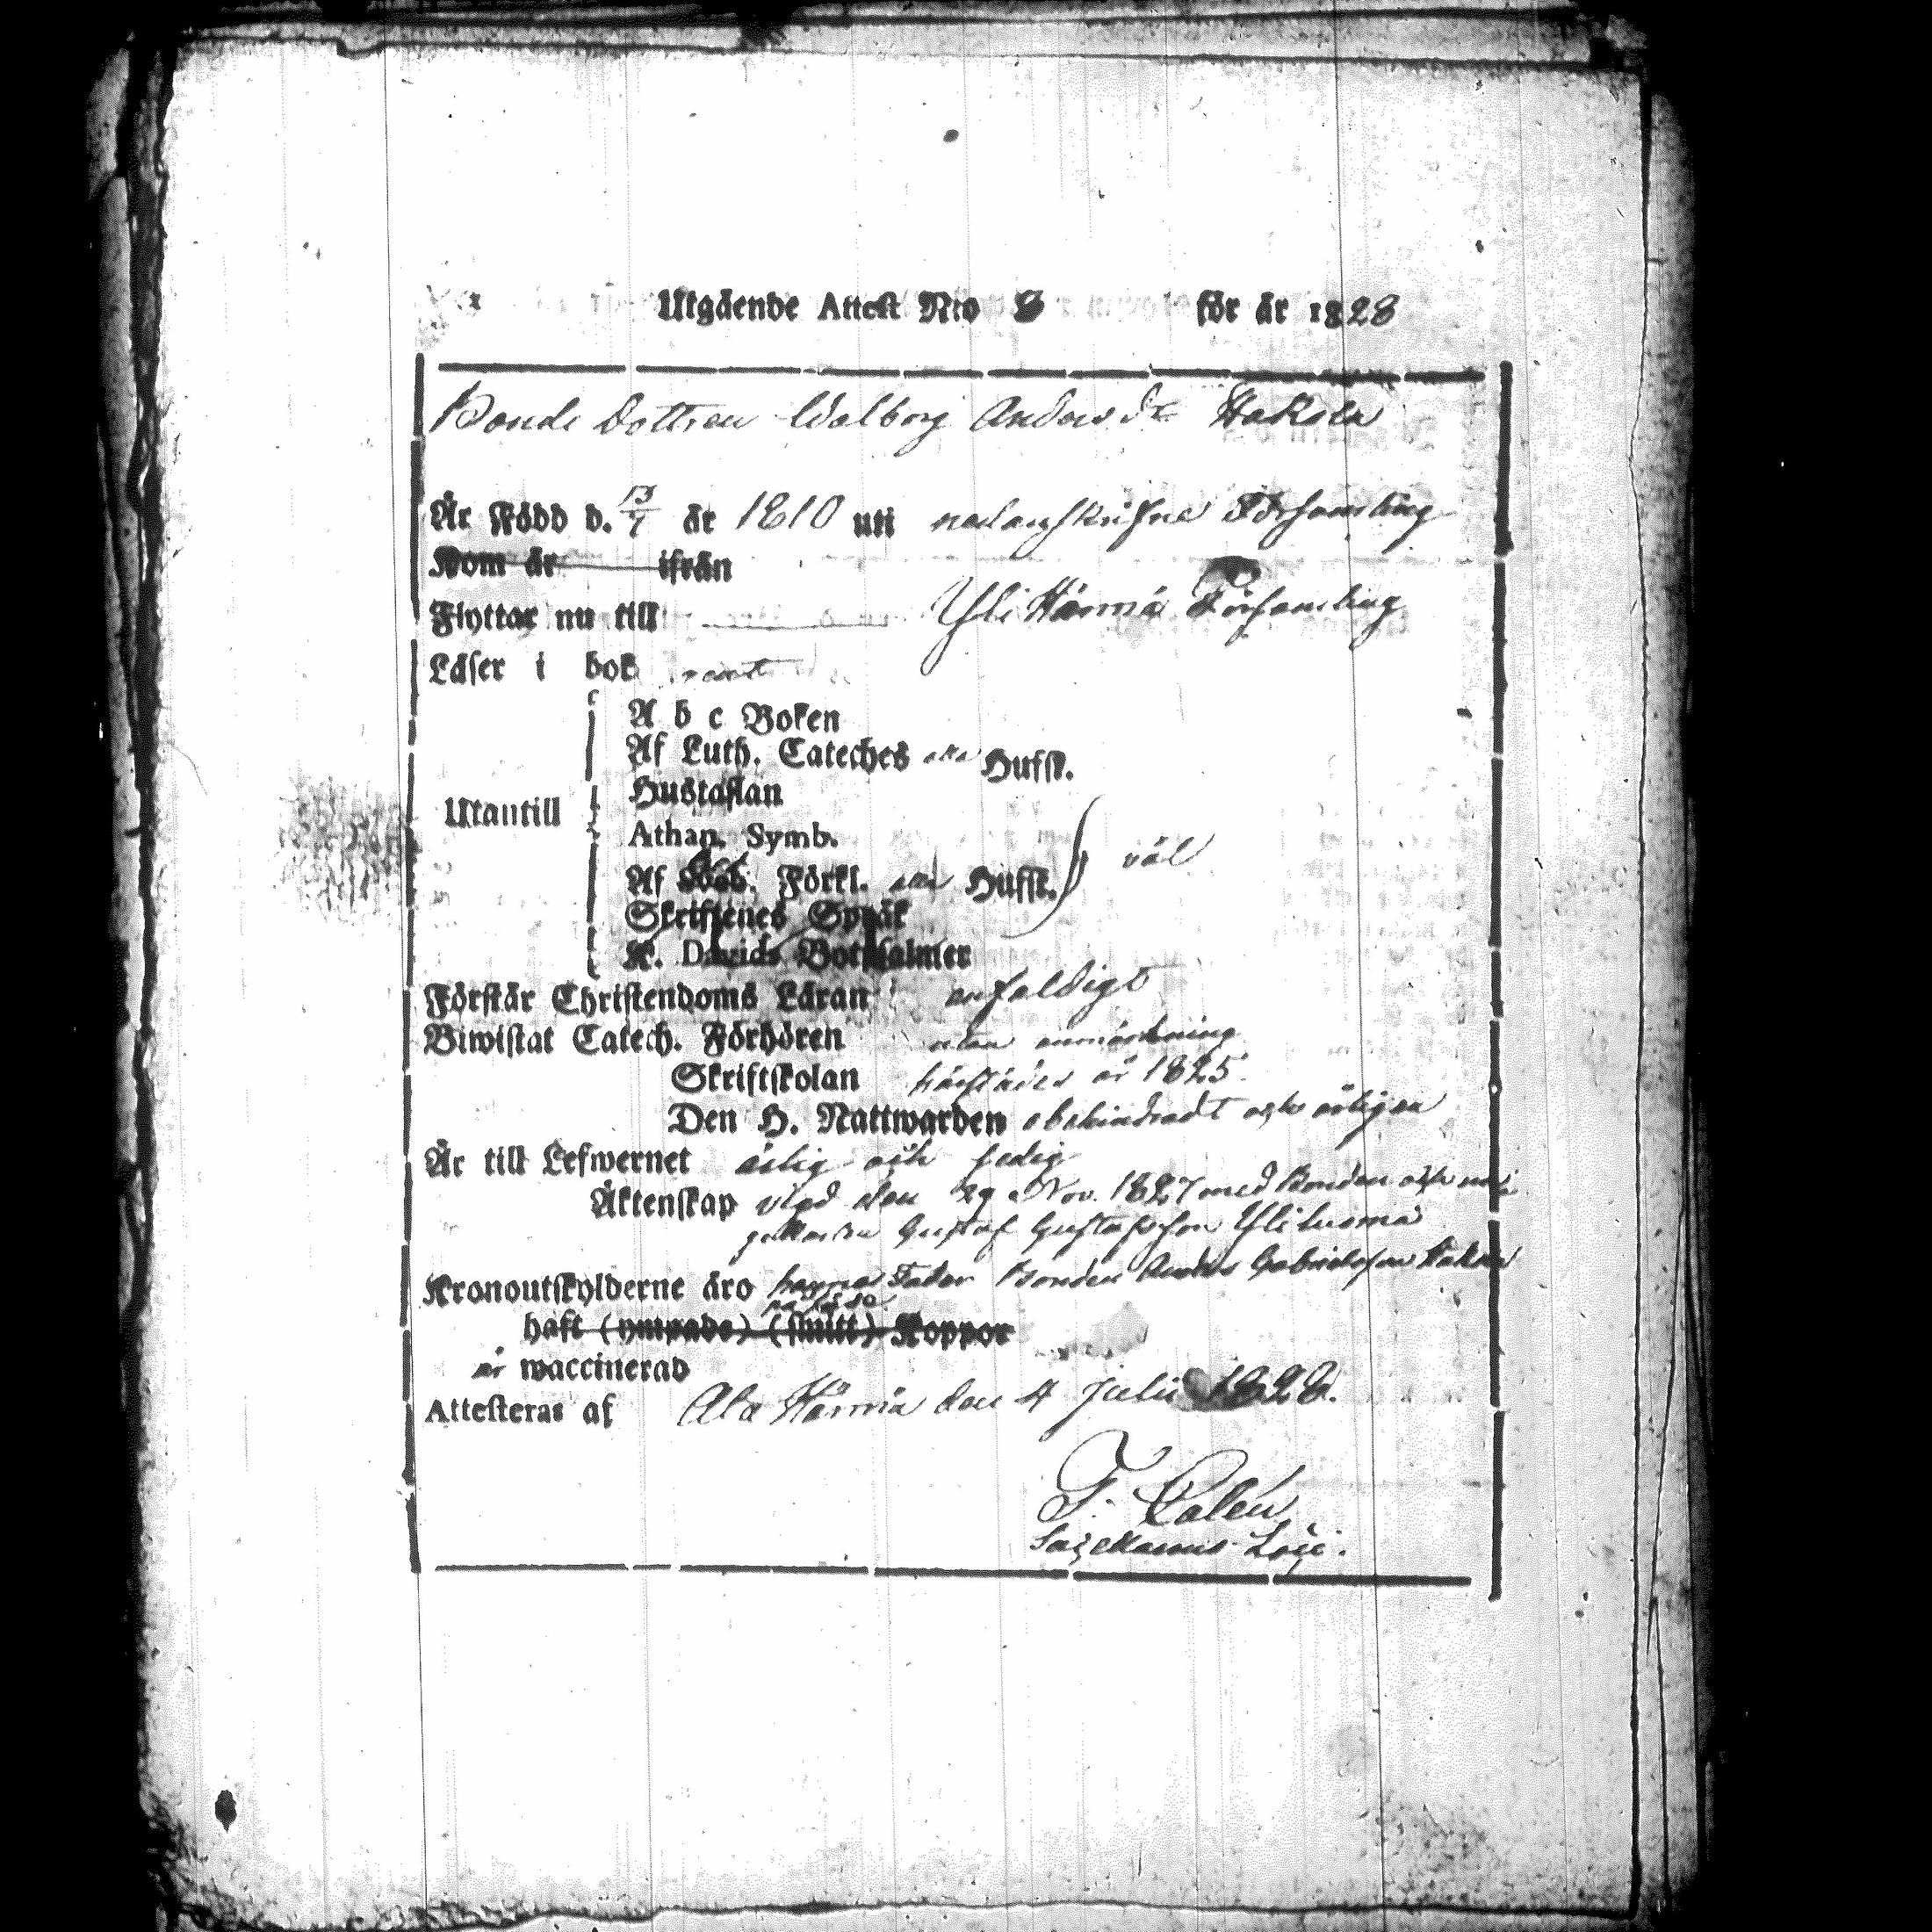 Utgående Attest Nro 8 för år 1828
Bonde Dottren Walborg Andersdr Hakola
Är Född d. 13/7 år 1810 uti nedanskrifne Församling
Kom år ifrån
Flyttar nu till Yli Härmä Församling
Läser i bok rent
A b c Boken
Af Luth. Cateches Hufst.
Hustaflan
Utantill
Athan. Symb.
Af Förkl. Hufst. väl
Skriftenes Språk
K. Davids Botpsalmer
Förstår Christendoms Läran enfaldigt
Biwistat Catech. Förhören utan anmärkning
Skriftskolan härstädes år 1825
Den H. Nattwarden obehindradt och årligen
Är till Lefwernet ärlig och sedig
Äktenskap vigd den 29 Nov. 1827 med Bonden och
Gustaf Gustafsson Yliluoma
Kronoutskylderne äro Fader Bonden Anders Gabrielsson Hakola
haft (ympade) (smitt) Koppor
är waccinerad
Attesteras af Ala Härmä den 4 Julii 1828.
F. Calén